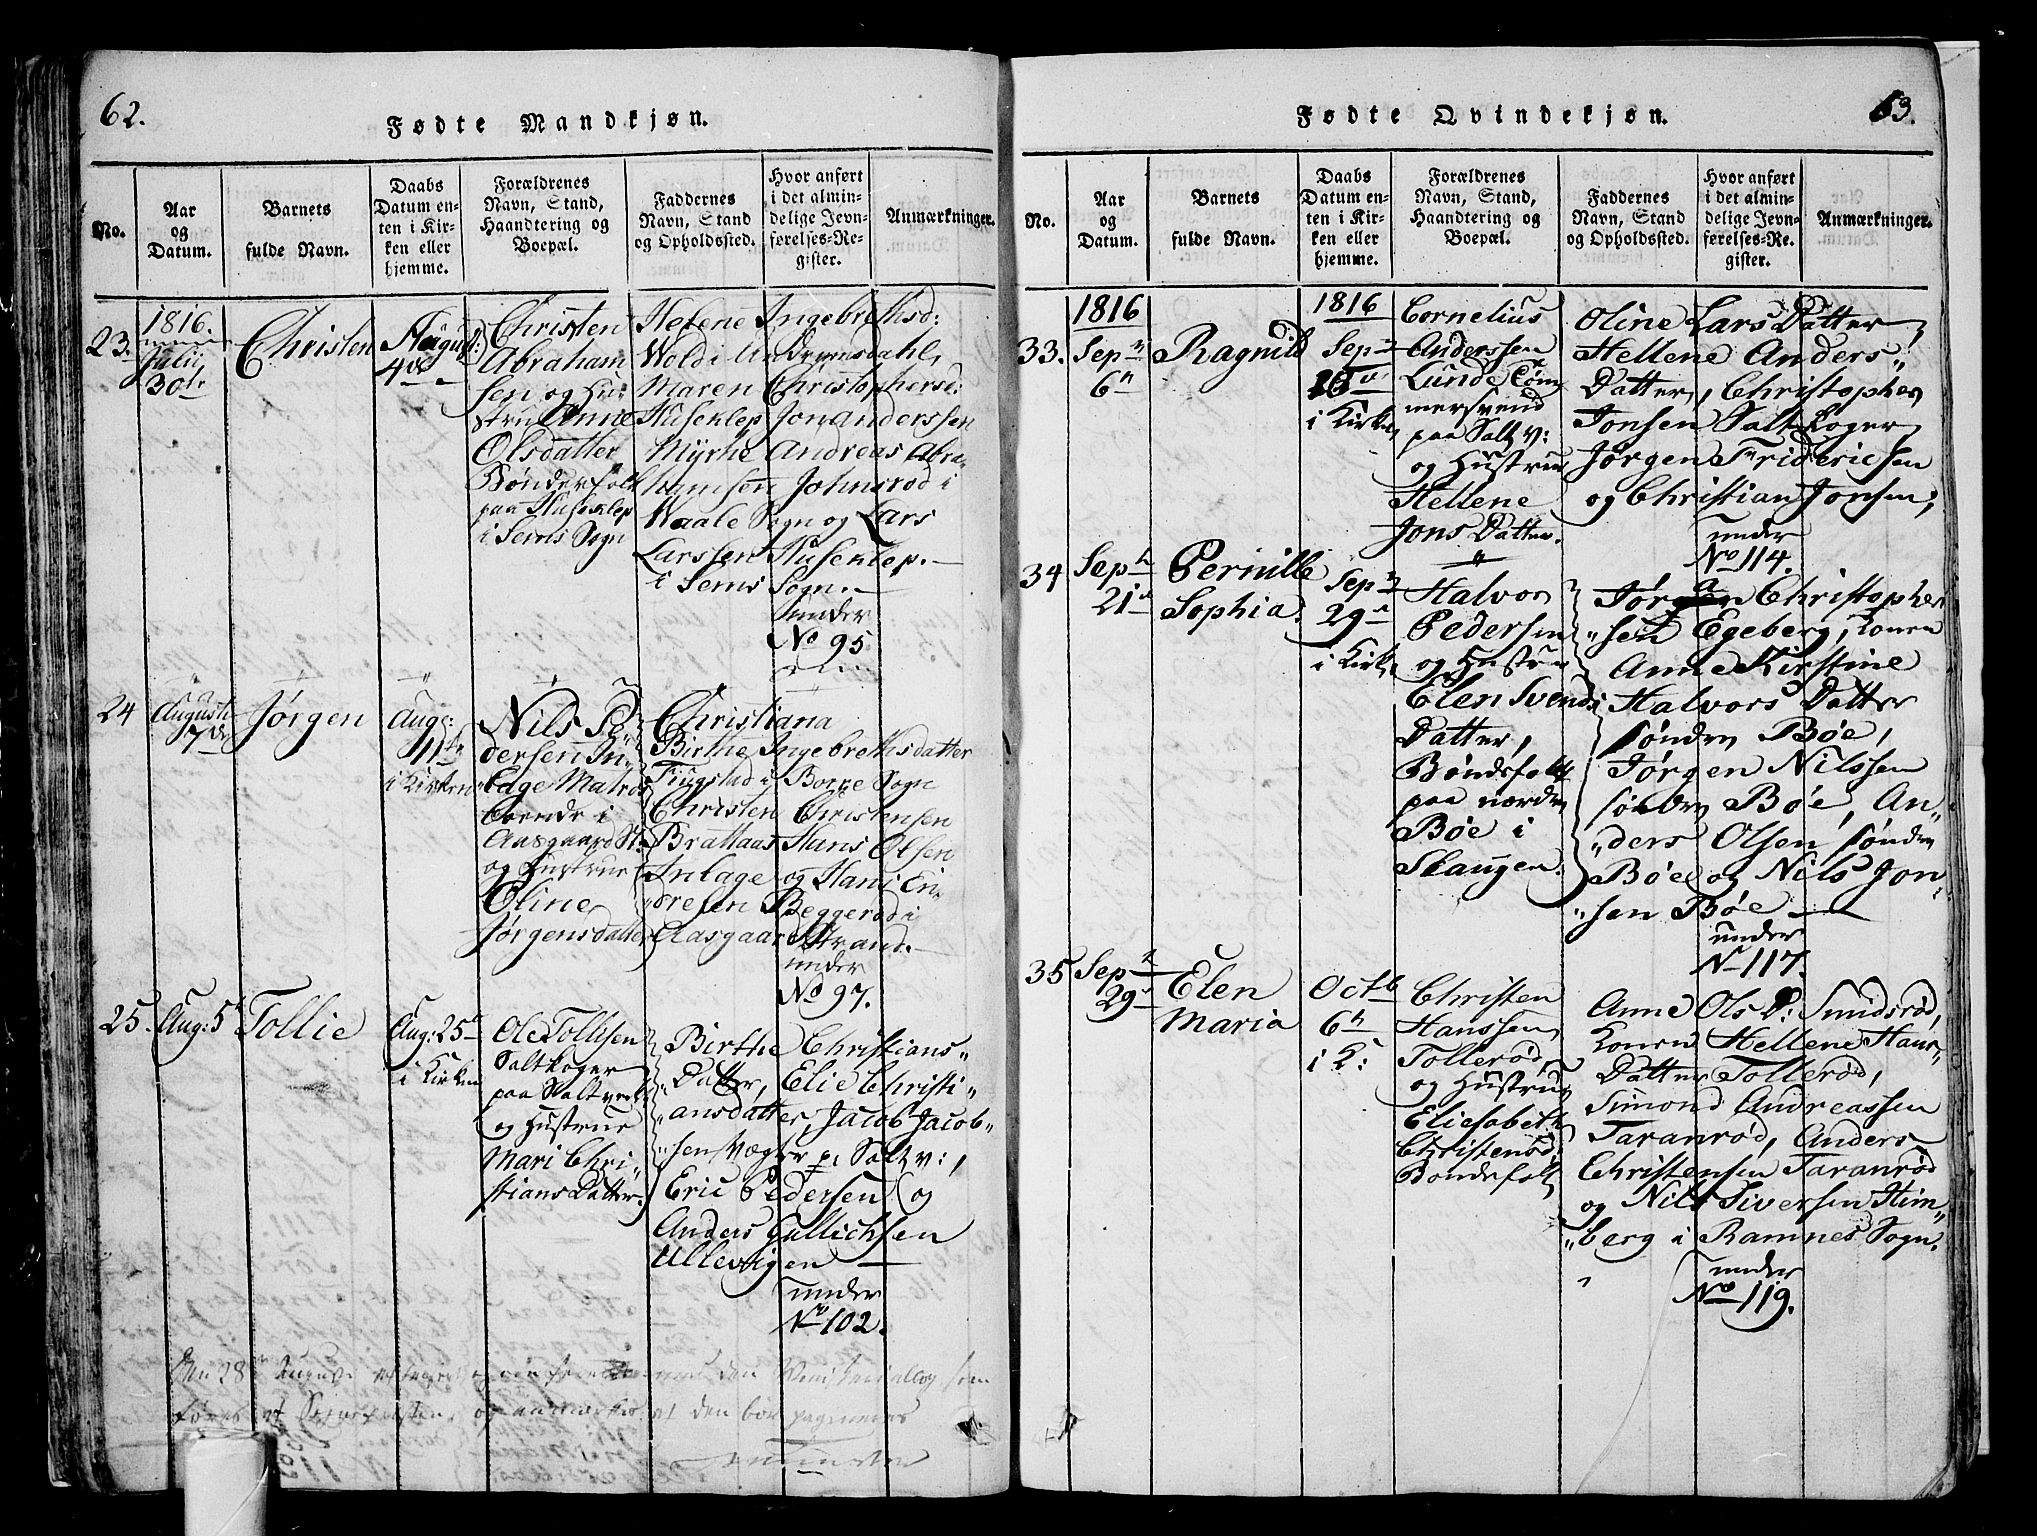 62.
Fødte Mandkjøn.
No.
Aar
og
Datum.
Barnets
fulde Navn.
Daabs
Datum en-
ten i Kir-
ken eller
hjemme.
Forældrenes
Navn, Stand,
Haandtering og
Boepæl.
Faddernes
Navn, Stand
og Opholdssted.
Hvor anført
i det almin-
delige Jevn-
førelses-Re-
gister.
Anmærkninger.
23.
1816.
Julii
30te
Christen
August:
4de
Christen
Abraham
sen og Hu-
stru Anne
Olsdatter
Bønderfolk
paa Huseklep
i Sems Sogn
Helene Ingebrethsd:
Wold i Undrumsdahl,
Maren Christophersd:
Huseklep Jon Anderssen
Myrhe Andreas Abra-
hamsen Johnsrød i
Waale Sogn og Lars
Larssen Huseklep.
i Sems Sogn.
under
No 95
24
Augusti
7de
Jørgen
Aug:
11te
i Kirken
Nils Pe-
dersen In-
lage Matros
boende i
Aasgaard St.
og Hustrue
Oline
Jørgensdatter
Christiana
Birthe Ingebrethsdatter
Fiugstad i Borre Sogn
Christen Christensen
Brattaas Hans Olsen
Inlage og Hans En-
dresen Beggerød i
Aasgaard Strand.
under
No 97.
25.
Aug: 5te
Tollie
Aug: 25te
i Kirken
Ole Tollisen
Saltkoger
paa Saltverk
og Hustrue
Mari Chri-
stians Datter.
Birthe Christians-
Datter, Elie Christi-
ansdatter, Jacob Jacob-
sen Vægter p: Saltv:,
Eric Pedersen og
Anders Gullichsen
Ullevigen
under
No 102.
Den 28de August
den
som
og
at den bør pagineres
63.
Fødte Qvindekjøn.
No.
Aar
og
Datum.
Barnets
fulde Navn.
Daabs
Datum en-
ten i Kir-
ken eller
hjemme.
Forældrenes
Navn, Stand,
Haandtering og
Boepæl.
Faddernes
Navn, Stand
og Opholdssted.
Hvor anført
i det almin-
delige Jevn-
førelses-Re-
gister.
Anmærkninger.
33.
1816
Sepr
6te
Ragnild
1816
Sepr
i Kirken
Cornelius
Anderssen
Lunde Tøm
mersvend
paa Saltv:
og Hustrue
Hellene
Jons Datter.
Oline Lars Datter,
Hellene Anders
Datter, Christopher
Jonsen Salt Koger
Jørgen Fridericsen
og Christian Jonsen,
under
No 114.
34
Sept
21de
Pernille
Sophia
Sepr
29de
i Kirken
Halvor
Pedersen
og Hustrue
Elen Svends
Datter,
Bøndefolk
paa nordre
Bøe i
Slaugen.
Jørgen Christopher
sen Egeberg, Konen
Anne Kirstine
Halvors Datter
søndre Bøe,
Jørgen Nilssen
søndre Bøe, An-
ders Olsen søndre
Bøe og Nils Jon-
sen Bøe
under
No 117.
35
Sept
29de
Elen
Maria
Octb
6te
i K:
Christen
Hanssen
Tollerød
og Hustrue
Eliesabeth
Christensd:
Bondefolk
Anne Ols D: Smidsrød,
Konen Hellene Hans-
Datter Tollerød,
Simond Andreassen
Taranrød, Anders
Christensen Taranrød
og Nils Siversen Him-
berg i Ramnes Sogn.
under
No 119.